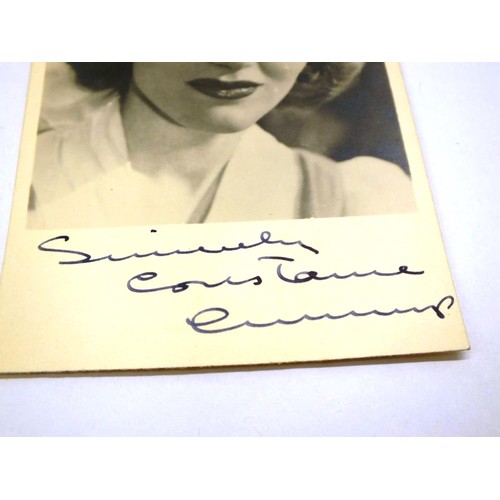 Sincerely
Constance
Cummings